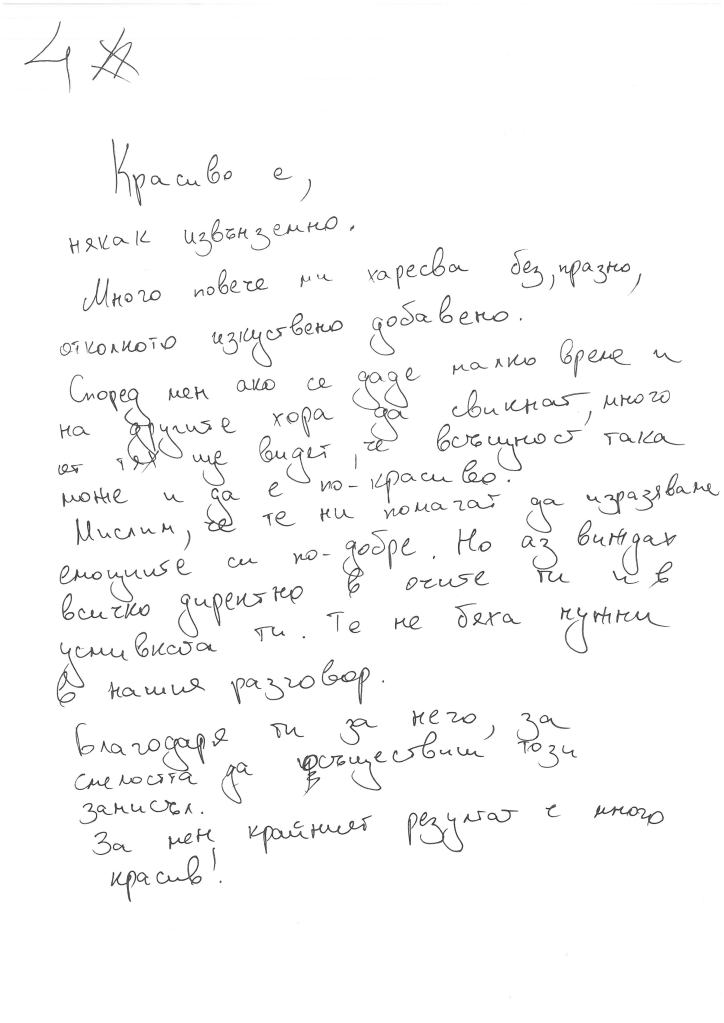 4
Красиво е,
някак извънземно.
Много повече ми харесва без, празно,
отколкото изкуствено добавено.
Според мен ако се даде малко време и
на другите хора да свикнат, много
от тях ще видят, че всъщност така
може и да е по-красиво.
Мислим, че те ни помагат да изразяваме
емоциите си по-добре. Но аз виждах
всичко директно в очите ти и в
усмивката ти. Те не бяха нужни
в нашия разговор.
Благодаря ти за него, за
смелостта да осъществиш този
замисъл.
За мен крайният резултат е много
красив!